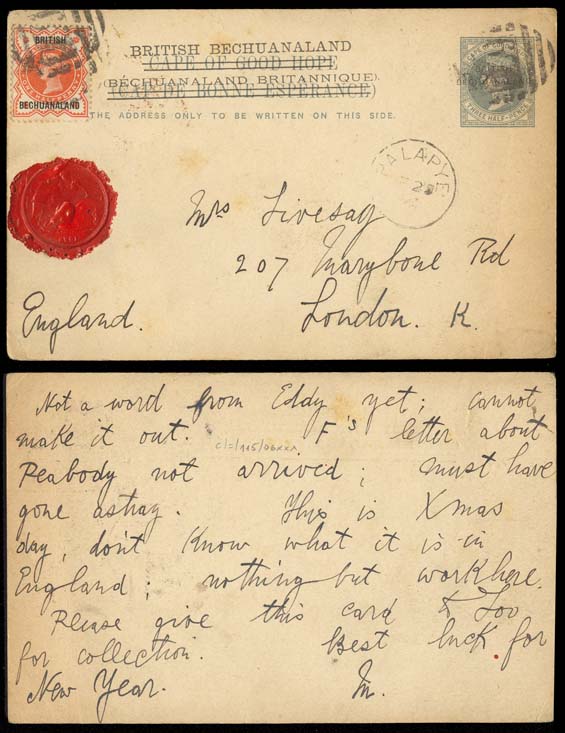 BRITISH
BECHUANALAND
BRITISH BECHUANALAND
CAPE OF GOOD HOPE
(BECHUANALAND BRITANNIQUE).
(CAP DE BONNE ESPERANCE)
THE ADDRESS ONLY TO BE WRITTEN ON THIS SIDE.
THREE HALF-PENCE
PALAPYE
Mrs Livesay
207 Marybone Rd
England. London. K.
Not a word from Eddy yet; cannot
make it out. F's letter about
Peabody not arrived; must have
gone astray. This is Xmas
day, don't know what it is in
England; nothing but work here.
Please give this card to Loo
for collection. Best luck for
New Year. M.